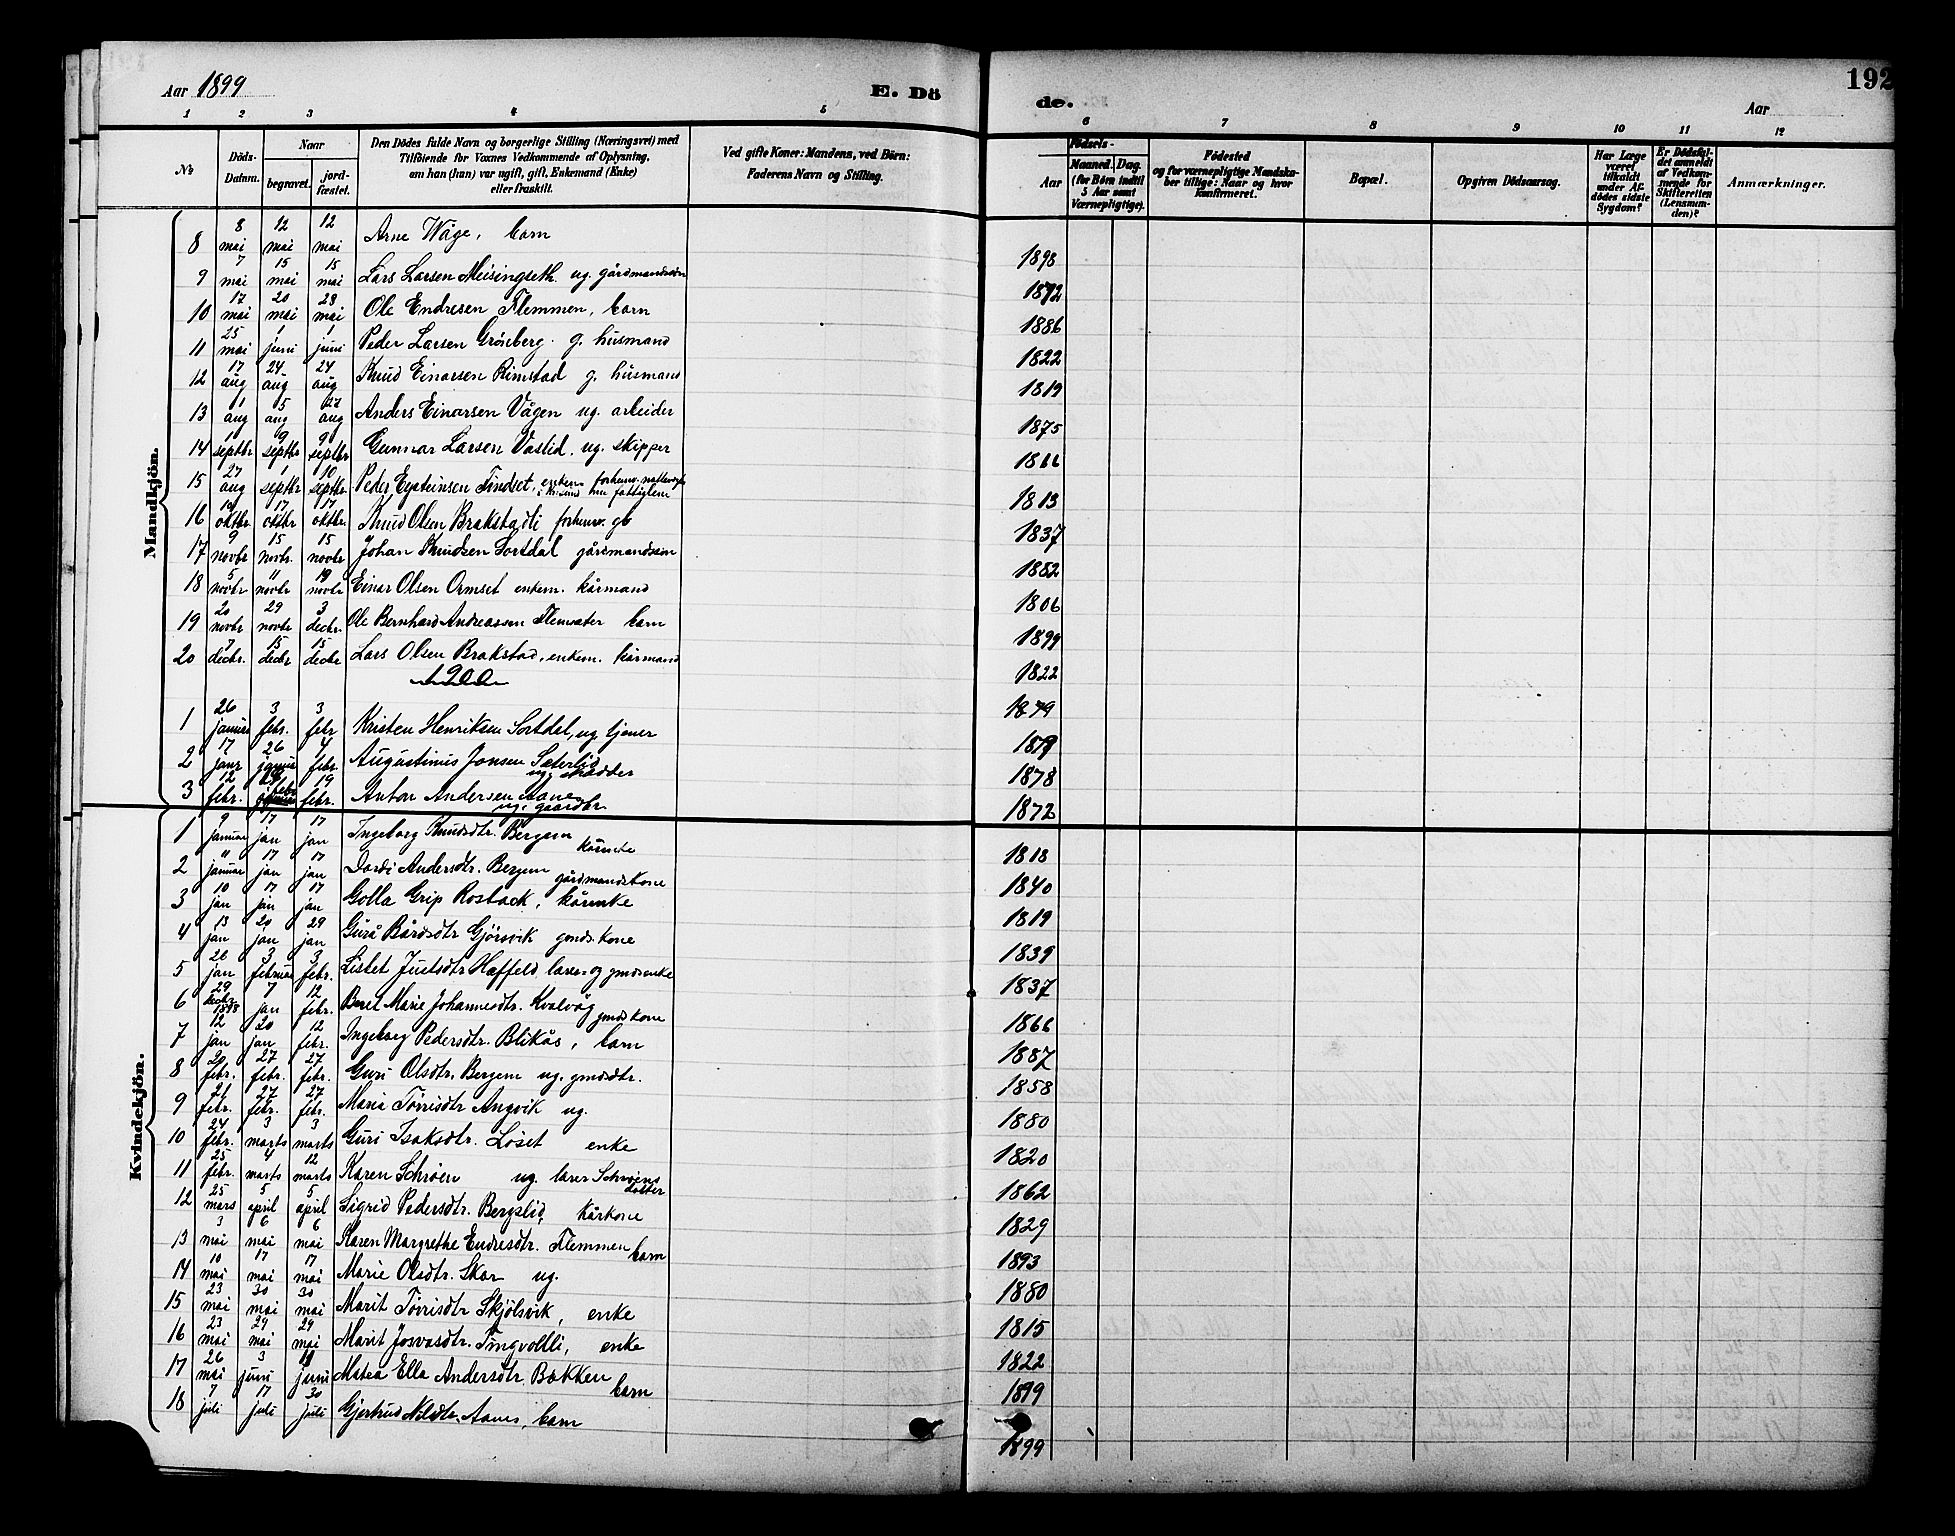 Aar 1899
E. Dö
de.
Aar
192
1 2 3 4 5 6 7 8 9 10 11 12
No
Döds-Datum.
Naar
begravet.
jord-fæstet.
Den Dödes fulde Navn og borgerlige Stilling (Næringsvei) med
Tilföiende for Voxnes Vedkommende af Oplysning,
om han (hun) var ugift, gift, Enkemand (Enke)
eller fraskilt.
Ved gifte Koner: Mandens, ved Börn:
Faderens Navn og Stilling.
Födsels-
Aar
Maaned. Dag.
(for Börn indtil
5 Aar samt
Værnepligtige).
Födested
og for værnepligtige Mandska-
ber tillige: Naar og hvor
konfirmeret.
Bopæl.
Opgiven Dödsaarsag.
Har Læge
været
tilkaldt
under Af-
dödes sidste
Sygdom?
Er Dödsfal-
det anmeldt
af Vedkom-
mende for
Skifteretten
(Lensman-
den)?
Anmærkninger.
Mandkjön.
8 8 mai 12 mai 12 mai Arne Wåge, barn 1898
9 7 mai 15 mai 15 mai Lars Larsen Meisingseth ug. gårdmandssön 1872
10 17 mai 20 mai 28 mai Ole Endresen Flemmen, barn 1886
11 25 mai 1 juni 1 juni Peder Larsen Gröneberg g. husmand 1822
12 17 aug 24 aug 24 aug Knud Einarsen Rimstad g. husmand 1819
13 1 aug 5 aug 27 aug Anders Einarsen Vågen ug. arbeider 1875
14 1 septbr 9 septbr 9 septbr Gunnar Larsen Vaslid, ug. skipper 1866
15 27 aug 1 septbr 10 septbr Peder Eysteinsen Tindset, enkem. forhenv. 1813
16 oktbr 17 oktbr 17 oktbr. Knud Olsen Brakstadli forhenv. gb 1837
17 9 novbr 15 novbr. 15 novbr Johan Knudsen Sortdal gårdmandssön 1882
18 5 novbr 11 novbr 19 novbr Einar Olsen Ormset enkem. kårmand 1806
19 20 novbr 29 novbr 3 decbr. Ole Bernhard Andreassen Flemsæter barn 1899
20 7 decbr. 15 decbr 15 decbr Lars Olsen Brakstad, enkem. kårmand 1822
1900
1 26 januar 3 febr. 3 febr Kristen Henriksen Sortdal, ug tjener 1879
2 17 janr 26 januar 4 febr. Augustinus Jonsen Sæterlid ug. skrædder 1878
3 12 febr. febr 19 febr. Anton Andersen Aanes ug. gaardbr 1872
Kvindekjön.
1 9 januar 17 jan 17 jan Ingeborg Knudsdtr. Bergem kårenke 1818
2 11 januar 17 jan 17 jan Dordi Andersdtr. Bergem gårdmandskone 1840
3 10 jan 17 jan 17 jan Golla Grip Rosback, kårenke 1819
4 13 jan 20 jan 29 jan Gurå Bårdsdtr Gjörsvik gmds.kone 1839
5 20 jan 3 februar 3 febr. Lisbet Justsdtr Hæffeld lærer- og gmdsenke 1837
6 29 decbr 1898 7 jan 12 febr. Beret Marie Johannesdtr. Kvalvåg gmdskone 1866
7 12 jan 20 jan 12 febr. Ingeborg Pedersdtr. Blikås, barn 1887
8 20 febr. 27 febr. 27 febr. Guri Olsdtr. Bergem ug. gmdsdtr. 1858
9 21 febr. 27 febr. 27 febr. Maria Törrisdtr Angvik ug. 1880
10 24 febr. 3 marts 3 marts Guri Isaksdtr. Löset enke 1820
11 25 febr. 4 marts 12 marts Karen Schröen ug. lærer Schröens datter 1862
12 25 mars 5 april 5 april Sigrid Pedersdtr. Bergslid, kårkone 1829
13 3 mai 6 mai 6 mai Karen Margrethe Endresdtr. Flemmen barn 1893
14 10 mai 17 mai 17 mai Marie Olsdtr. Skar ug. 1880
15 23 mai 30 mai 30 mai Marit Törrisdtr Skjölsvik, enke 1815
16 23 mai 29 mai 29 mai Marit Josvasdtr. Tingvoldli, enke 1822
17 26 mai 3 juni 11 juni Matea Ella Andersdtr Bækken barn 1899
18 7 juli 17 juli 30 juli Gjertrud Nilsdtr. Aanes, barn 1899